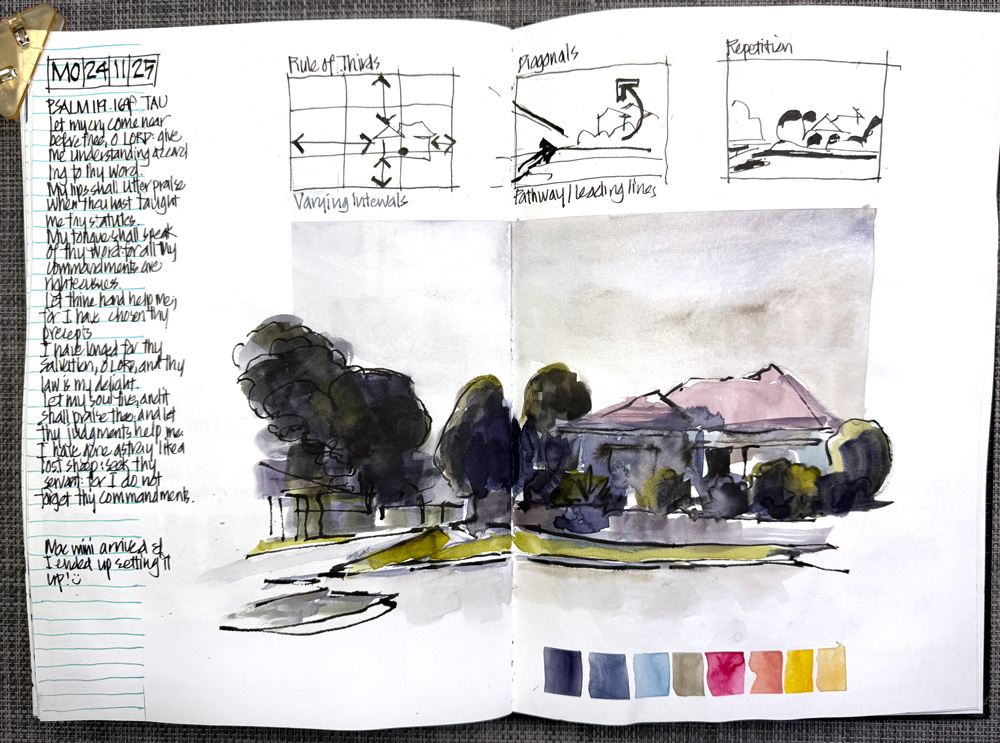 MO 24 11 25
PSALM 119. 169f TAU
Let my cry come near
before thee, O LORD: give
me understanding accord
ing to thy word.
My lips shall utter praise
when thou hast taught
me thy statutes.
My tongue shall speak
of thy word: for all thy
commandments are
righteousness.
Let thine hand help me;
for I have chosen thy
precepts
I have longed for thy
salvation, O LORD, and thy
law is my delight.
Let my soul live, and it
shall praise thee: and let
thy judgments help me.
I have gone astray like a
lost sheep: seek thy
servant: for I do not
forget thy commandments.
Mac mini arrived &
I ended up setting it
up! :)
Rule of Thirds
Varying Intervals
Diagonals
Pathway / leading lines
Repetition